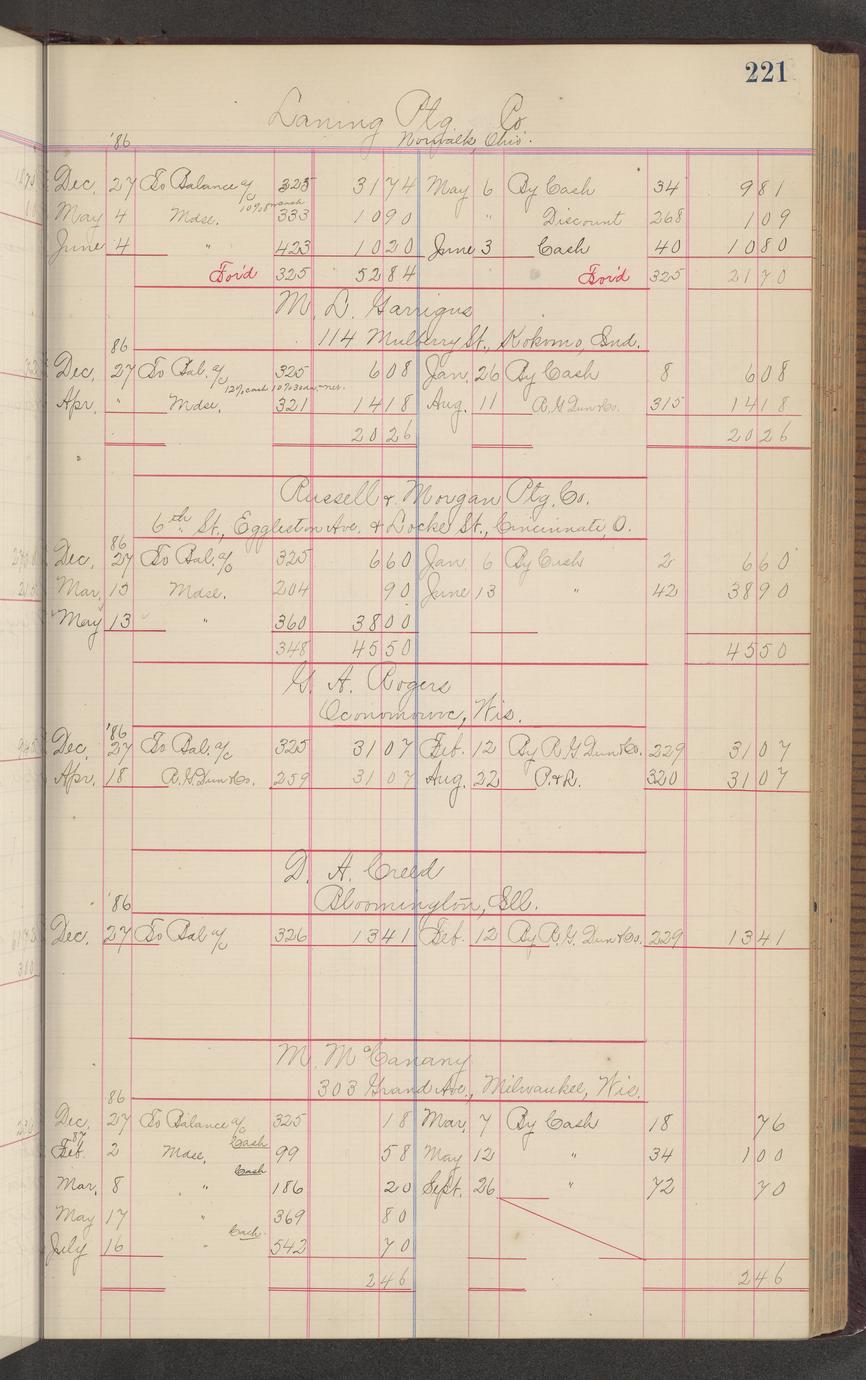 221
Laning Ptg. Co.
Norwalk, Ohio.
'86
Dec. 27 To Balance a/c 325 3174 May 6 By Cash 34 981
10% 8 cash
May 4 Mdse. 333 1090 " Discount 268 109
June 4 " 423 1020 June 3 Cash 40 1080
For'd 325 5284 For'd 325 2170
M. L. Garrigus
114 Mulberry St., Kokomo, Ind.
86
Dec. 27 To Bal. a/c 325 608 Jan. 26 By Cash 8 608
12% cash 10% 30 da. net.
Apr. " Mdse. 321 1418 Aug. 11 R. G. Dun & Co. 315 1418
2026 2026
Russell & Morgan Ptg. Co.
6th St., Eggleston Ave. & Locke St., Cincinnati, O.
86
Dec. 27 To Bal. a/c 325 660 Jan. 6 By Cash 2 660
Mar. 15 Mdse. 204 90 June 13 " 42 3890
May 13 " 360 3800
348 4550 4550
G. A. Rogers
Oconomowc, Wis.
'86
Dec. 27 To Bal. a/c 325 3107 Feb. 12 By R. G. Dun & Co. 229 3107
Apr. 18 R. G. Dun & Co. 259 3107 Aug. 22 P. & L. 320 3107
D. A. Creed
Bloomington, Ill.
'86
Dec. 27 To Bal a/c 326 1341 Feb. 12 By R. G. Dun & Co. 229 1341
M. McCanany
303 Grand Ave., Milwaukee, Wis.
86
Dec. 27 To Balance a/c 325 18 Mar. 7 By Cash 18 76
87
Feb. 2 Mdse. Cash 99 58 May 12 " 34 100
Mar. 8 " Cash 186 20 Sept. 26 " 72 70
May 17 " 369 80
July 16 " Cash 542 70
246 246